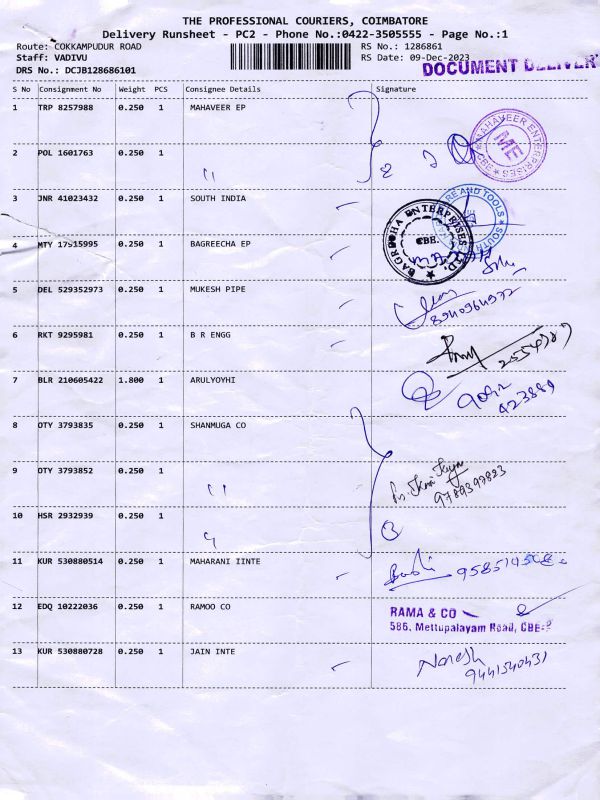 THE PROFESSIONAL COURIERS, COIMBATORE
Delivery Runsheet - PC2 - Phone No.:0422-3505555 - Page No.:1
Route: COKKAMPUDUR ROAD RS No.: 1286861
Staff: VADIVU RS Date: 09-Dec-2023
DRS No.: DCJB128686101 DOCUMENT DELIVER
S No Consignment No Weight PCS Consignee Details Signature
1 TRP 8257988 0.250 1 MAHAVEER EP
MAHAVEER ENTERPRISES CBE ME
2 POL 1601763 0.250 1 "
3 JNR 41023432 0.250 1 SOUTH INDIA
4 MTY 17915995 0.250 1 BAGREECHA EP
BAGREECHA ENTERPRISES LTD. CBE.
5 DEL 529352973 0.250 1 MUKESH PIPE
6 RKT 9295981 0.250 1 B R ENGG
7 BLR 210605422 1.800 1 ARULYOYHI
423889
8 OTY 3793835 0.250 1 SHANMUGA CO
9 OTY 3793852 0.250 1 "
9789397823
10 HSR 2932939 0.250 1 "
11 KUR 530880514 0.250 1 MAHARANI IINTE
12 EDQ 10222036 0.250 1 RAMOO CO
RAMA & CO
586, Mettupalayam Road, CBE-2
13 KUR 530880728 0.250 1 JAIN INTE
Naresh
9441540431